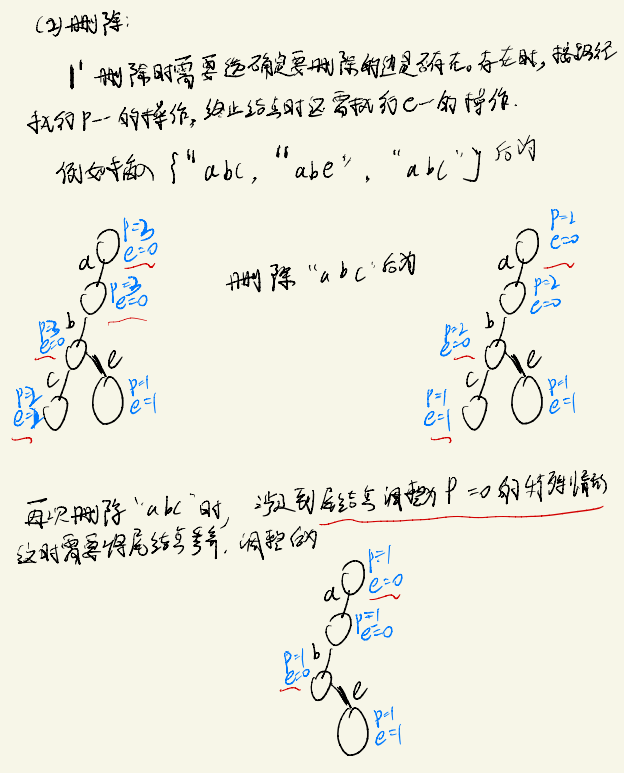 (2)删除:
1° 删除时需要先确定要删除的边是否存在。存在时,按路径
执行P--的操作,终止结点时还需执行e--的操作.
例如插入 {"abc, "abe", "abc"} 后为
P=3
e=0
a
P=3
e=0
b
P=3
e=0
c
e
P=2
e=2
P=1
e=1
删除"abc"后为
P=2
e=0
a
P=2
e=0
b
P=2
e=0
c
e
P=1
e=1
P=1
e=1
再次删除"abc"时, 涉及到尾结点调整为P=0的特殊情形
这时需要将尾结点 调整为
P=1
e=0
a
P=1
e=0
b
P=1
e=0
e
P=1
e=1